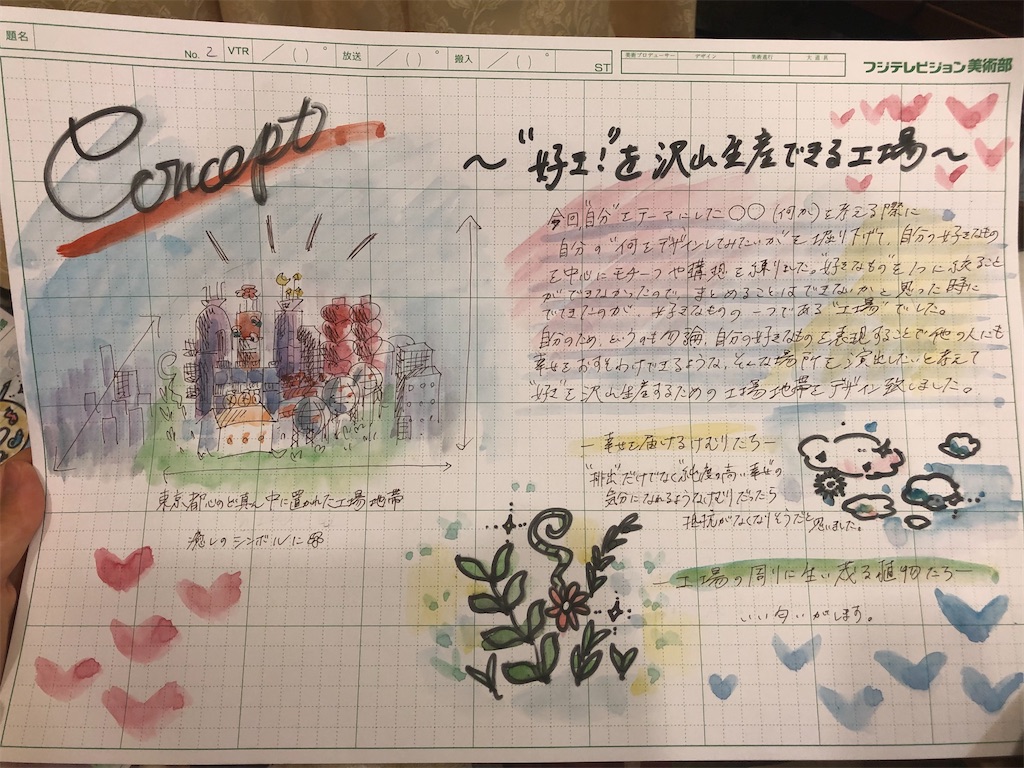 題名
No. 2 VTR / ( ) ° 放送 / ( ) ° 搬入 / ( ) ° ST
美術プロデューサー デザイン 美術進行 大道具
フジテレビジョン美術部
Concept
〜"好き!"を沢山生産できる工場〜
今回"自分"をテーマにした○○(何か)を考える際に
自分の"何をデザインしてみたいか"を掘り下げて、自分の好きなもの
を中心にモチーフや構想を練りました。"好きなもの"を1つに絞ること
ができなかったので、まとめることはできないかと思った時に
でてきたのが、好きなものの一つである"工場"でした。
自分のため、というのも勿論、自分の好きなものを表現することで他の人にも
幸せをおすそわけできるような、そんな場所を演出したいと考えて
"好き"を沢山生産するための工場地帯をデザイン致しました。
東京都心のど真ん中に置かれた工場地帯
癒しのシンボルに
― 幸せを届けるけむりたち ―
"排出"だけでなく"純度の高い幸せ"の
気分になれるようなけむりだったら
抵抗がなくなりそうだと思いました。
― 工場の周りに生い茂る植物たち ―
いい匂いがします。